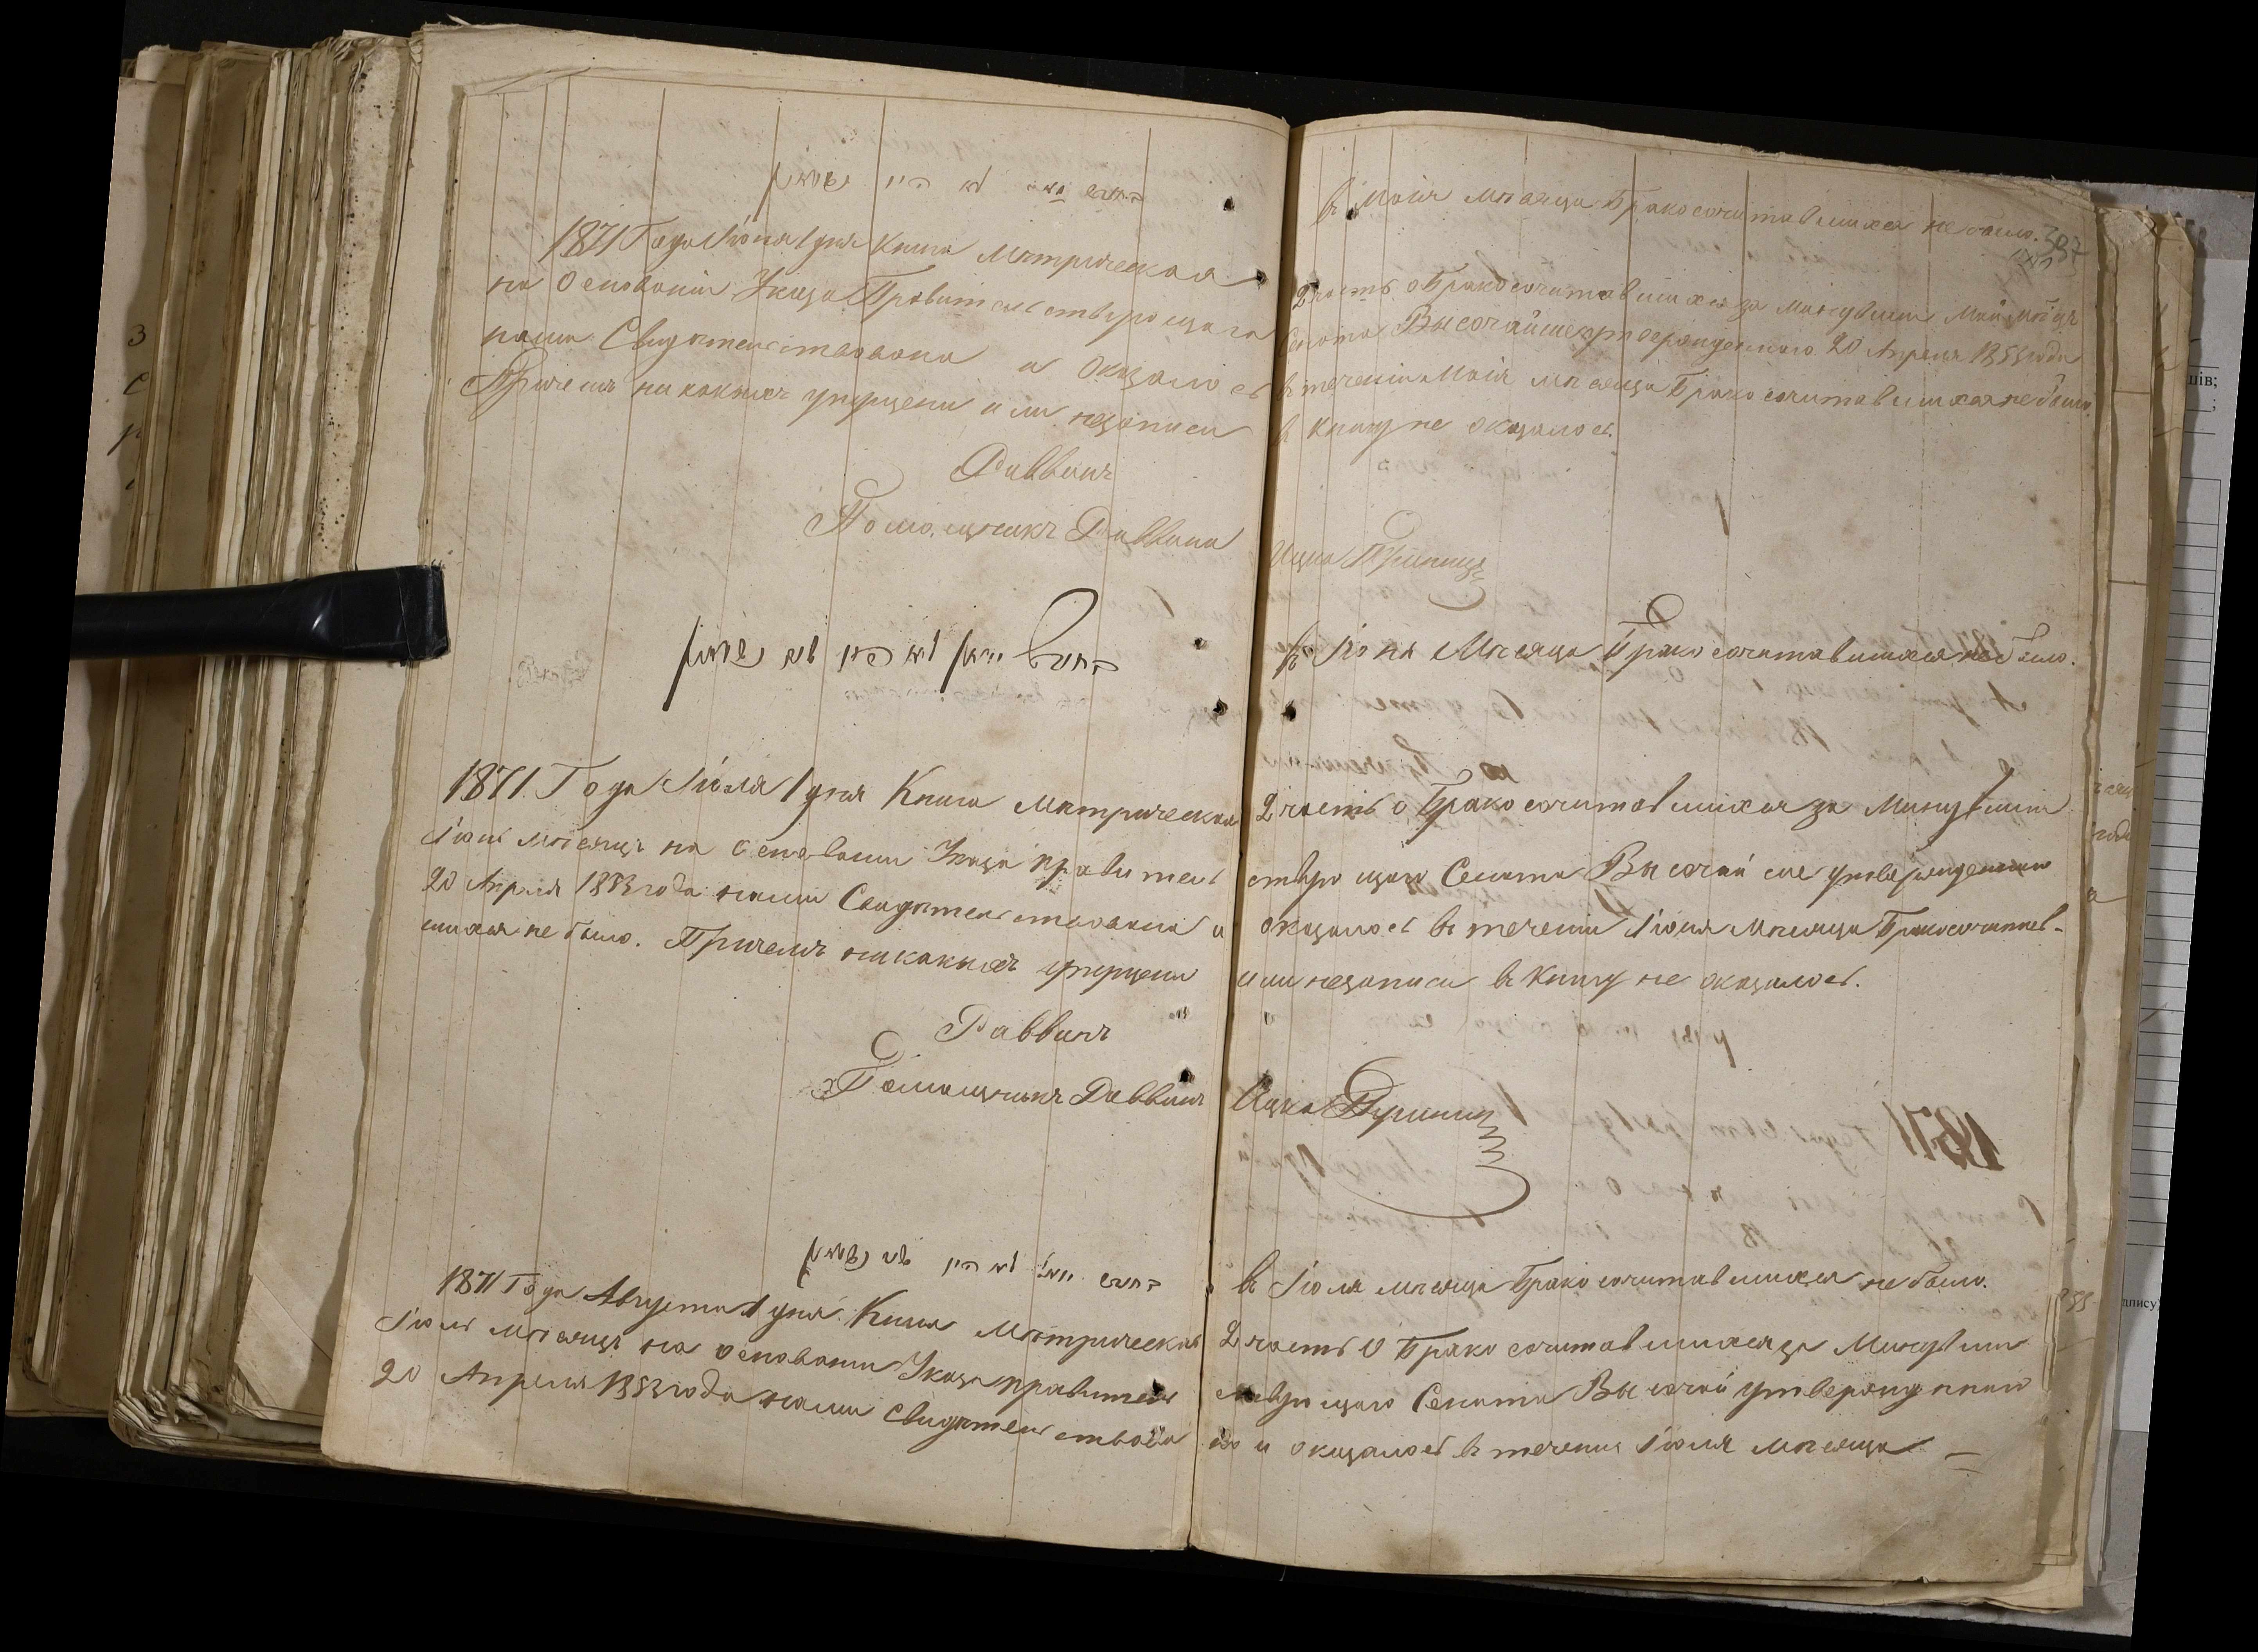 בחודש מאי לא היו נשואין
въ Маія мѣсяца Бракосочитавшихся не было.
1871 Года Іюня 1 дня Книга Метрическая 2 часть о Бракосочитавшихся за минувшии Май мѣсяц
на Основании Указа Правительствующага Сената Высочайше утвержденнаго 20 Апреля 1853 года
нами Свидѣтельствована и Оказалось въ течении Маія мѣсяца Бракосочитавшихся не было.
Причемъ никакихъ упущени или незаписи въ книгу не оказалось.
Раввинъ
Помощникъ Раввина Ицко
בחודש יוני לא היו שום נשואין
въ Іюня Мѣсяца Бракосочитавшихся не было.
1871 Года Іюля 1 дня Книга Метрическая 2 часть о Бракосочитавшихся за Минувшии
Іюнь мѣсяцъ на основании Указа правительствующаго Сената Высочайше утвержденнаго
20 Апреля 1853 года нами Свидѣтельствована и оказалось въ течении Іюня Мѣсяца Бракосочитав-
шихся не было. Причемъ никакихъ упущени или незаписи въ Книгу не оказалось.
Раввинъ
Помощникъ Раввина Ицко
בחודש יולי לא היו שום נשואין
въ Іюля мѣсяца Бракосочитавшихся не было.
1871 Года Августа 1 дня Книга Метрическая 2 часть о Бракосочитавшихся за Минувшии
Іюль мѣсяцъ на основании Указа правительствующаго Сената Высочай утвержденнаго
20 Апреля 1853 года нами свидѣтельствована и оказалось въ течении Іюля мѣсяца =